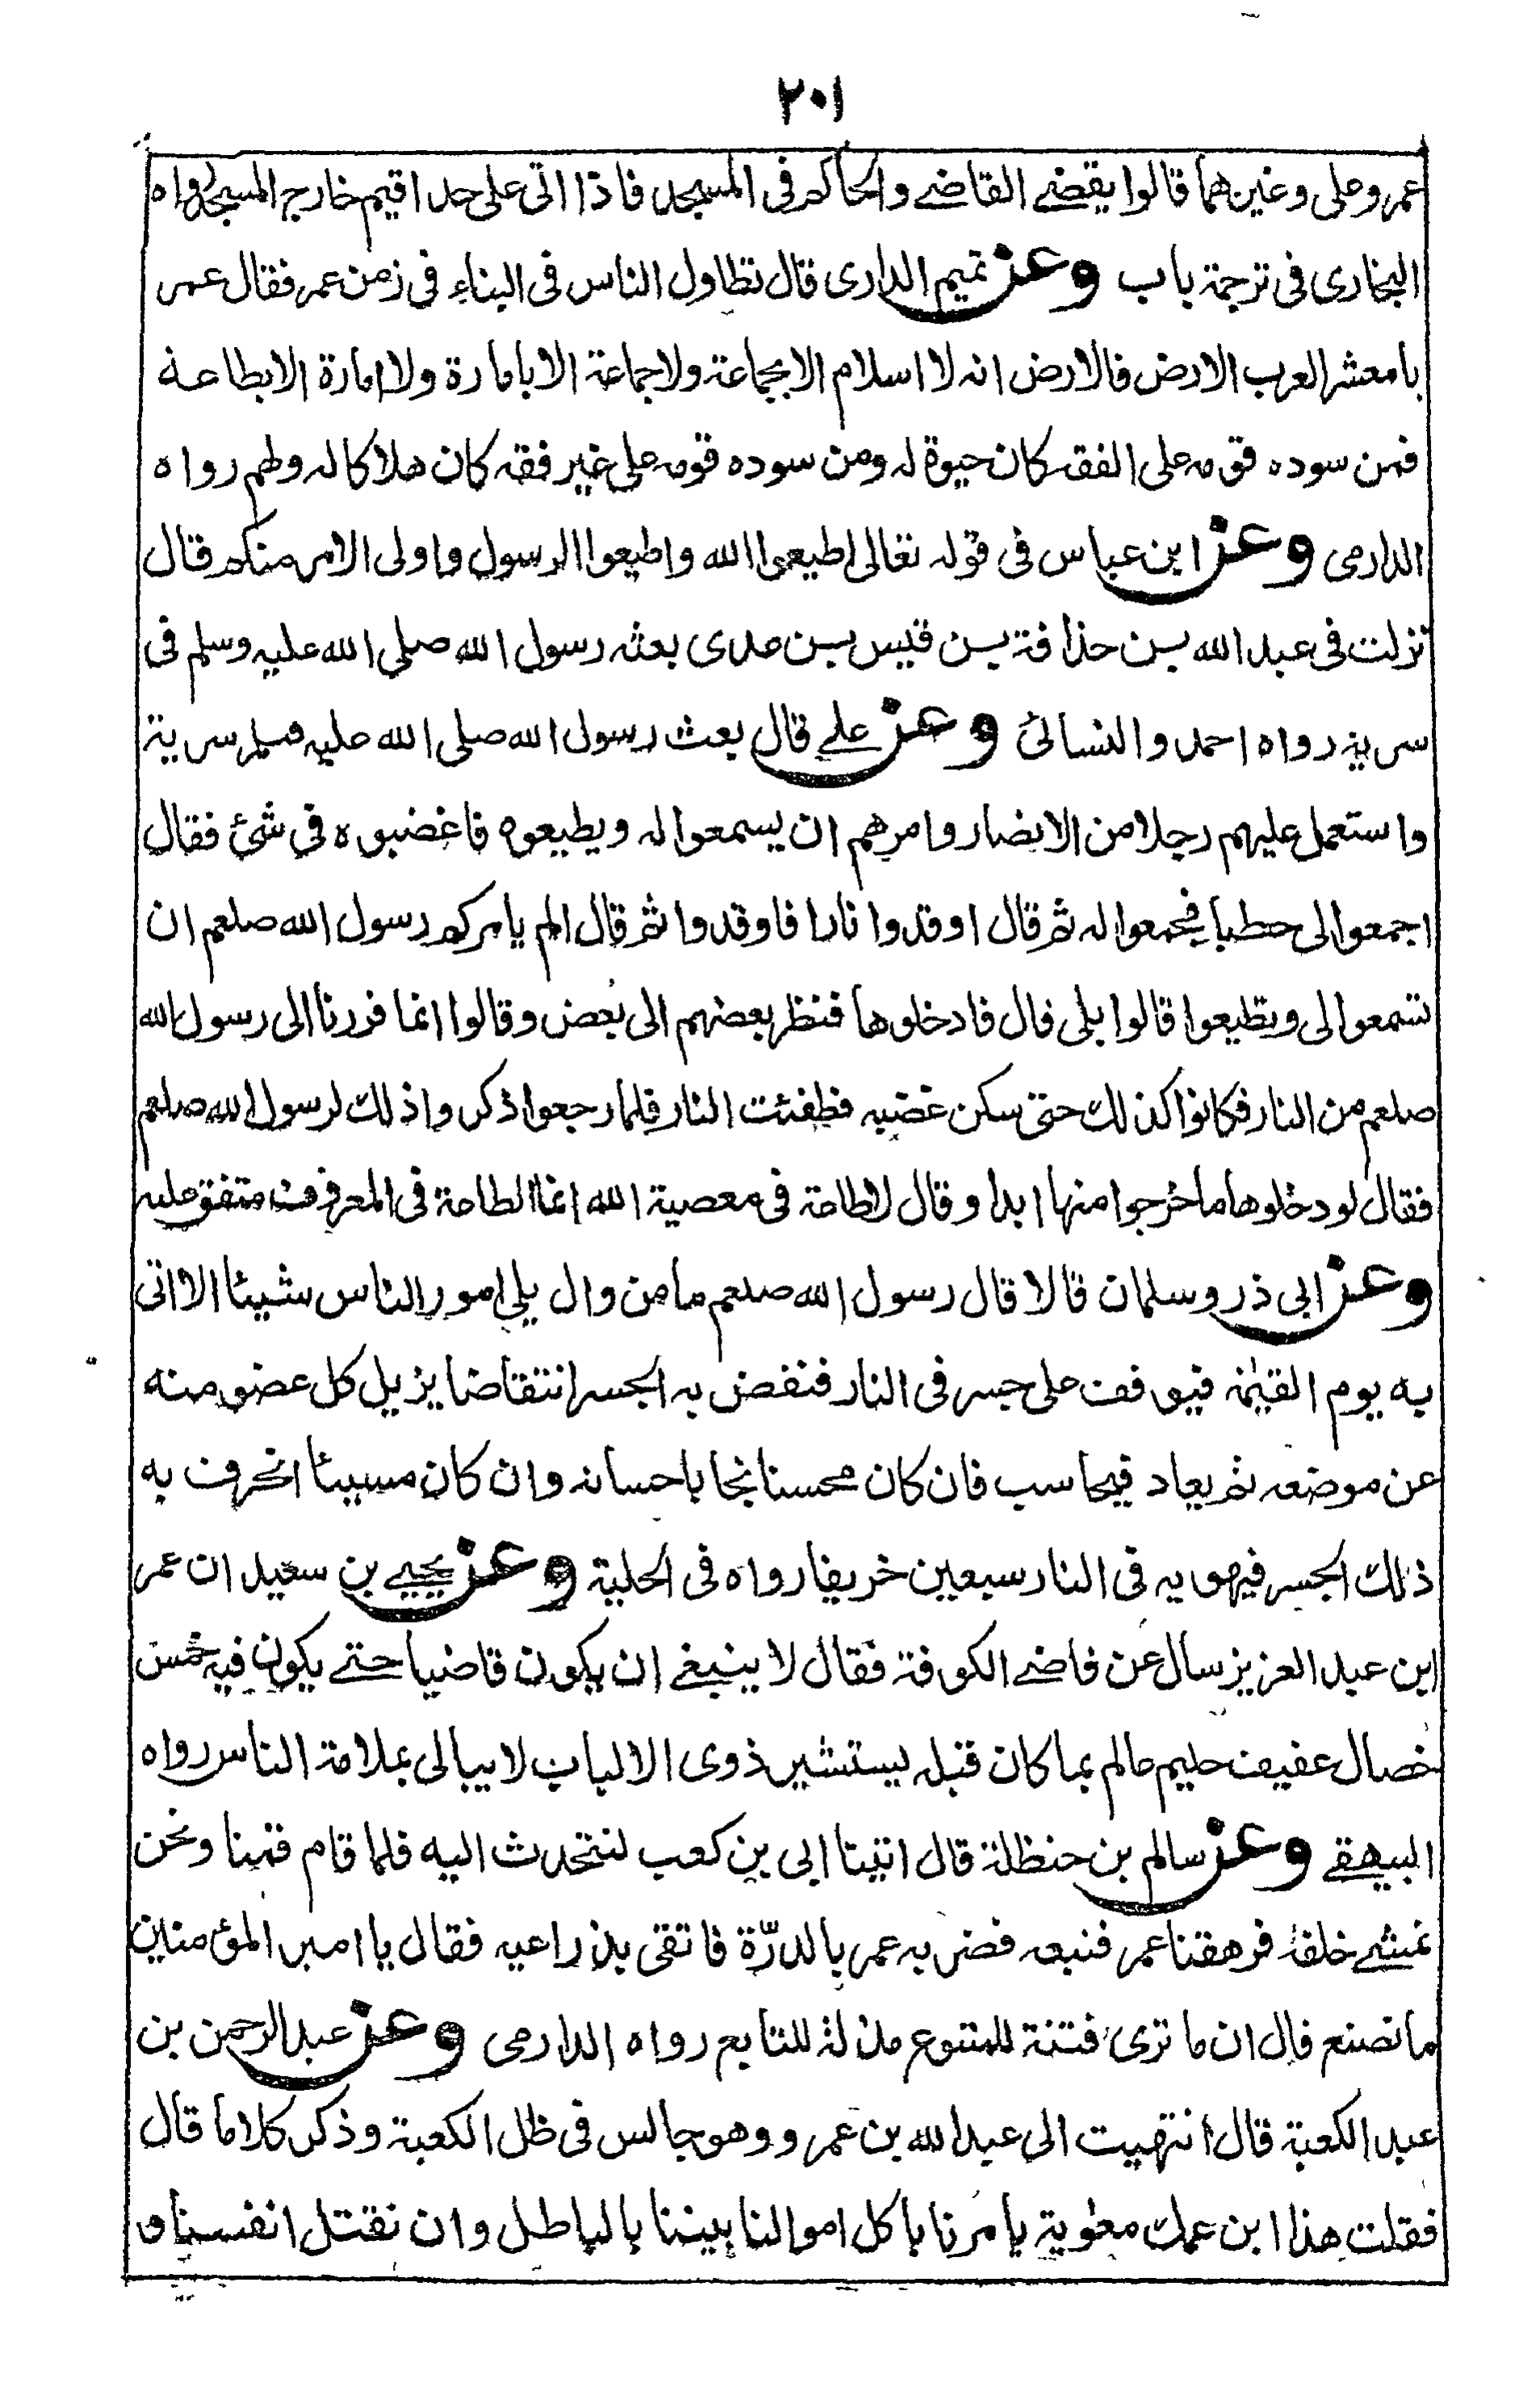 ٢٠١
عمر وعلى وغيرهما قالوا يقضے القاضے والحاكم فى المسجد فاذا اتى على حد اقيم خارج المسجد رواه
البخارى فى ترجمة باب وعن تميم الدارى قال تطاول الناس فى البناء فى زمن عمر فقال عمر
يا معشر العرب الارض فالارض انه لا اسلام الا بجماعة ولا جماعة الا بامارة ولا امارة الا بطاعة
فمن سوده قومه على الفقه كان حيوة له ومن سوده قومه على غير فقه كان هلاكا له ولهم رواه
الدارمى وعن ابن عباس فى قوله تعالى اطيعوا الله واطيعوا الرسول واولى الامر منكم قال
نزلت فى عبد الله بن حذافة بن قيس بن عدى بعثه رسول الله صلى الله عليه وسلم فى
سرية رواه احمد والنسائى وعن علے قال بعث رسول الله صلى الله عليه وسلم سرية
واستعمل عليهم رجلا من الانصار وامرهم ان يسمعوا له ويطيعوه فاغضبوه فى شئ فقال
اجمعوا لى حطبا فجمعوا له ثم قال اوقدوا نارا فاوقدوا ثم قال الم يامركم رسول الله صلعم ان
تسمعوا لى وتطيعوا قالوا بلى قال فادخلوها فنظر بعضهم الى بعض وقالوا انما فررنا الى رسول الله
صلعم من النار فكانوا كذلك حتى سكن غضبه فطفئت النار فلما رجعوا ذكروا ذلك لرسول الله صلعم
فقال لو دخلوها ما خرجوا منها ابدا وقال لا طاعة فى معصية الله انما الطاعة فى المعروف متفق عليه
وعن ابى ذر وسلمان قالا قال رسول الله صلعم ما من وال يلى امور الناس شيئا الا اتى
به يوم القيٰمة فيوقف على جسر فى النار فنفض به الجسر انتقاضا يزيل كل عضو منه
عن موضعه ثم يعاد فيحاسب فان كان محسنا نجا باحسانه وان كان مسيئا انحرف به
ذلك الجسر فيهوى به فى النار سبعين خريفا رواه فى الحلية وعن يحيے بن سعيد ان عمر
ابن عبد العزيز سال عن قاضے الكوفة فقال لا ينبغے ان يكون قاضيا حتے يكون فيه خمس
خصال عفيف حليم عالم بما كان قبله يستشير ذوى الالباب لا يبالى بملامة الناس رواه
البيهقے وعن سالم بن حنظلة قال اتينا ابى بن كعب لنتحدث اليه فلما قام قمنا ونحن
نمشے خلفه فرهقنا عمر فتبعه فضربه عمر بالدرّة فاتقى بذراعيه فقال يا امير المؤمنين
ما تصنع قال ان ما ترى فتنة للمتبوع مذلة للتابع رواه الدارمى وعن عبد الرحمن بن
عبد الكعبة قال انتهيت الى عبد الله بن عمرو وهو جالس فى ظل الكعبة وذكر كلاما قال
فقلت هذا ابن عمك معٰوية يامرنا باكل اموالنا بيننا بالباطل وان نقتل انفسنا و